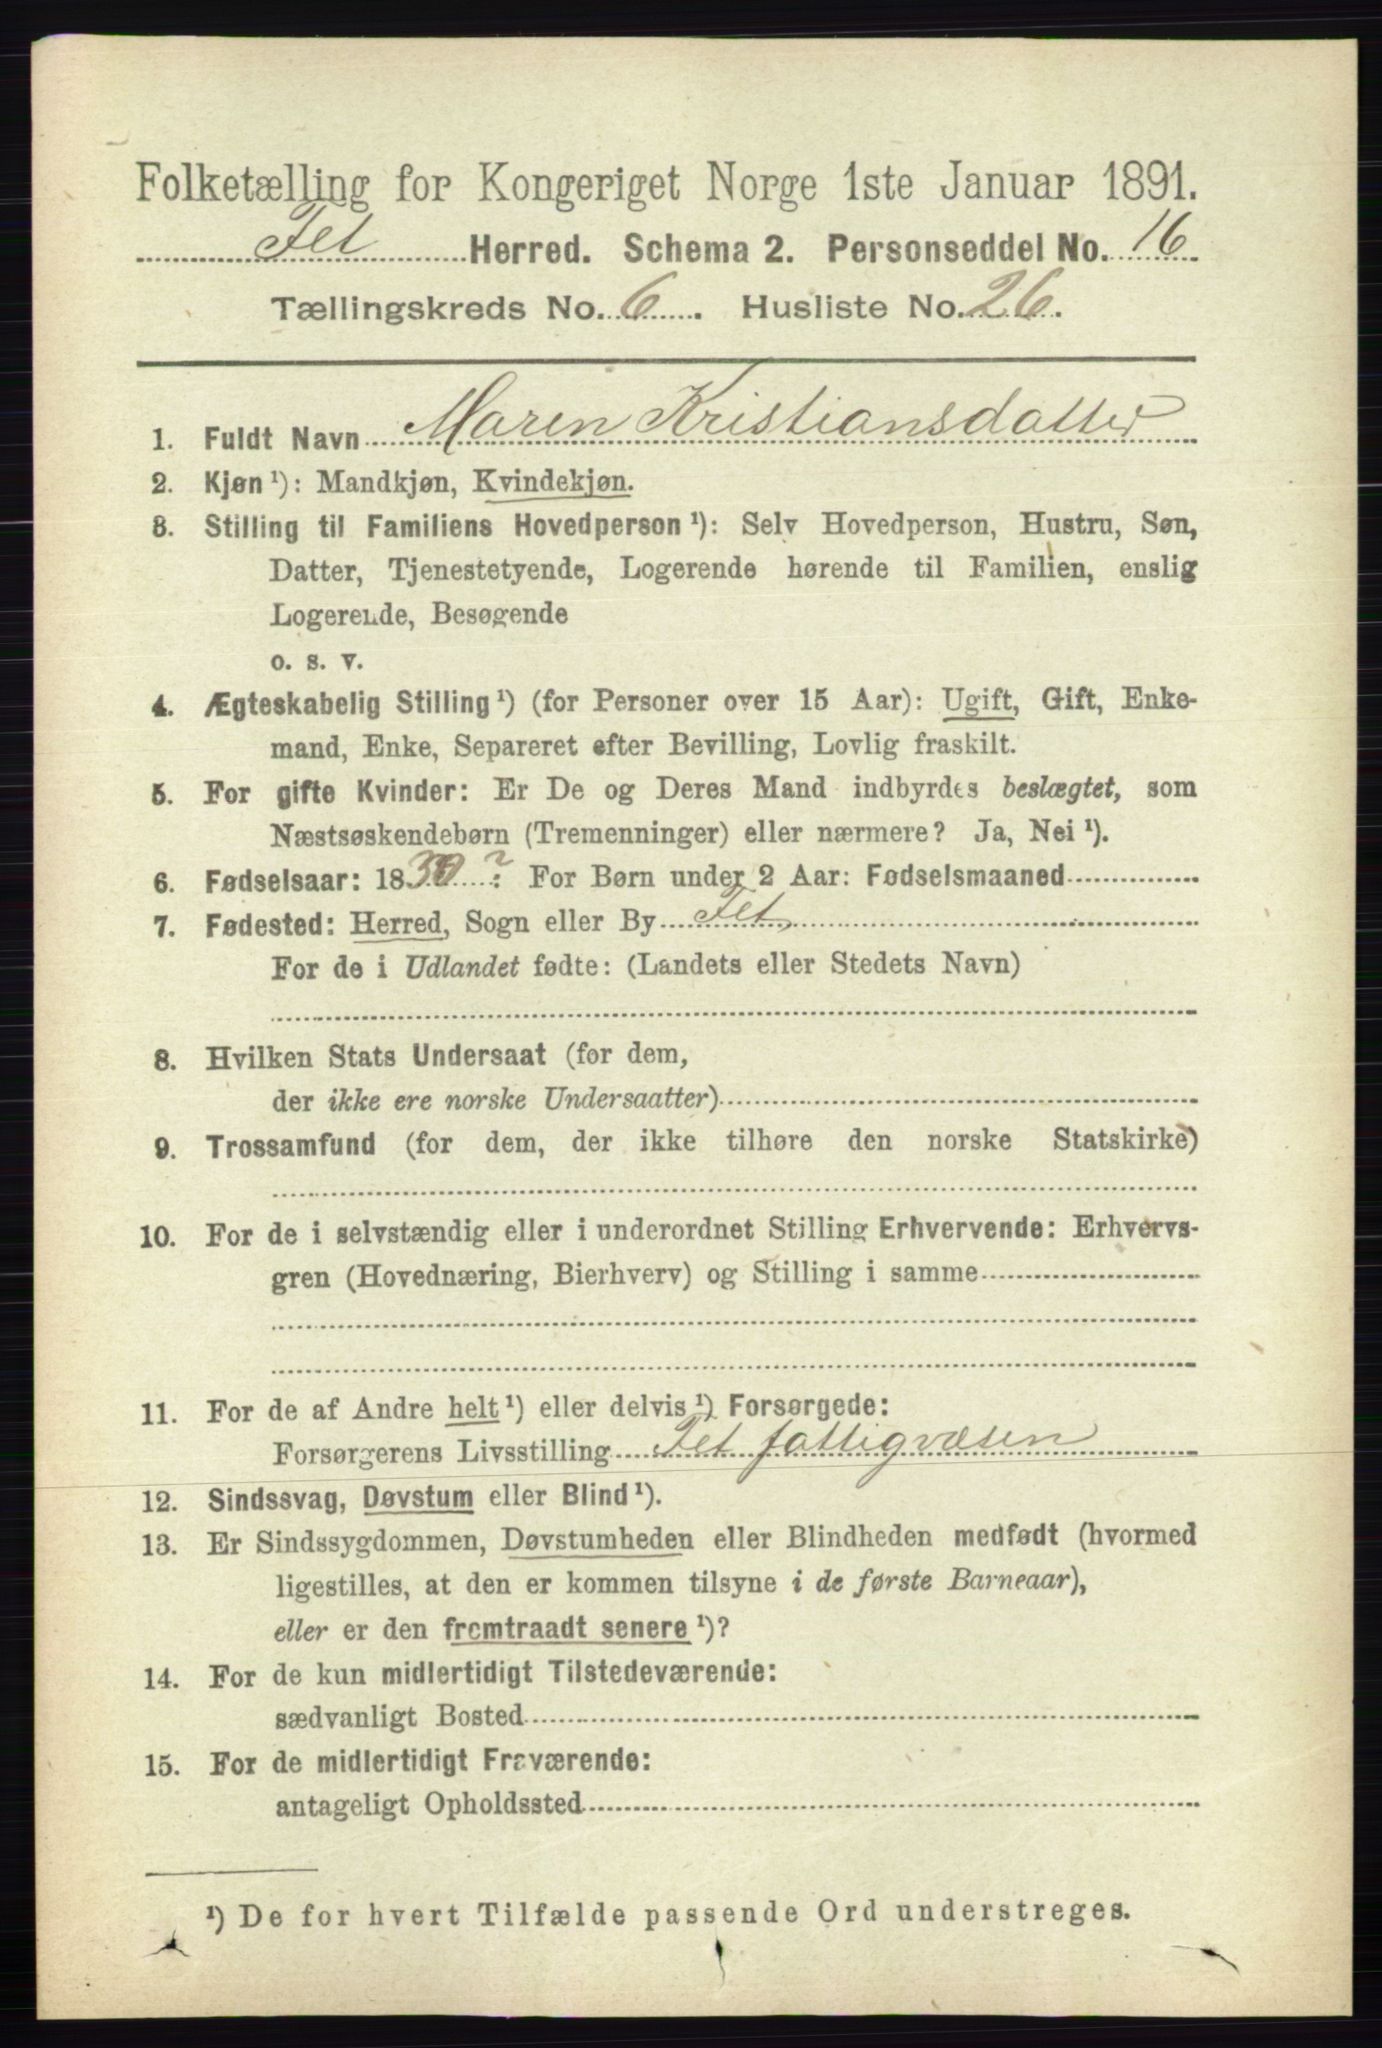 Folketælling for Kongeriget Norge 1ste Januar 1891.
Fet Herred. Schema 2. Personseddel No. 16
Tællingskreds No. 6. Husliste No. 26.
1. Fuldt Navn Maren Kristiansdatter
2. Kjøn ¹): Mandkjøn, Kvindekjøn.
3. Stilling til Familiens Hovedperson ¹): Selv Hovedperson, Hustru, Søn,
Datter, Tjenestetyende, Logerende hørende til Familien, enslig
Logerende, Besøgende
o. s. v.
4. Ægteskabelig Stilling ¹) (for Personer over 15 Aar): Ugift, Gift, Enke-
mand, Enke, Separeret efter Bevilling, Lovlig fraskilt.
5. For gifte Kvinder: Er De og Deres Mand indbyrdes beslægtet, som
Næstsøskendebørn (Tremenninger) eller nærmere? Ja, Nei ¹).
6. Fødselsaar: 1830? For Børn under 2 Aar: Fødselsmaaned
7. Fødested: Herred, Sogn eller By Fet
For de i Udlandet fødte: (Landets eller Stedets Navn)
8. Hvilken Stats Undersaat (for dem,
der ikke ere norske Undersaatter)
9. Trossamfund (for dem, der ikke tilhøre den norske Statskirke)
10. For de i selvstændig eller i underordnet Stilling Erhvervende: Erhvervs-
gren (Hovednæring, Bierhverv) og Stilling i samme
11. For de af Andre helt ¹) eller delvis ¹) Forsørgede:
Forsørgerens Livsstilling Fet fattigvæsen
12. Sindssvag, Døvstum eller Blind ¹).
13. Er Sindssygdommen, Døvstumheden eller Blindheden medfødt (hvormed
ligestilles, at den er kommen tilsyne i de første Barneaar),
eller er den fremtraadt senere ¹)?
14. For de kun midlertidigt Tilstedeværende:
sædvanligt Bosted
15. For de midlertidigt Fraværende:
antageligt Opholdssted
¹) De for hvert Tilfælde passende Ord understreges.